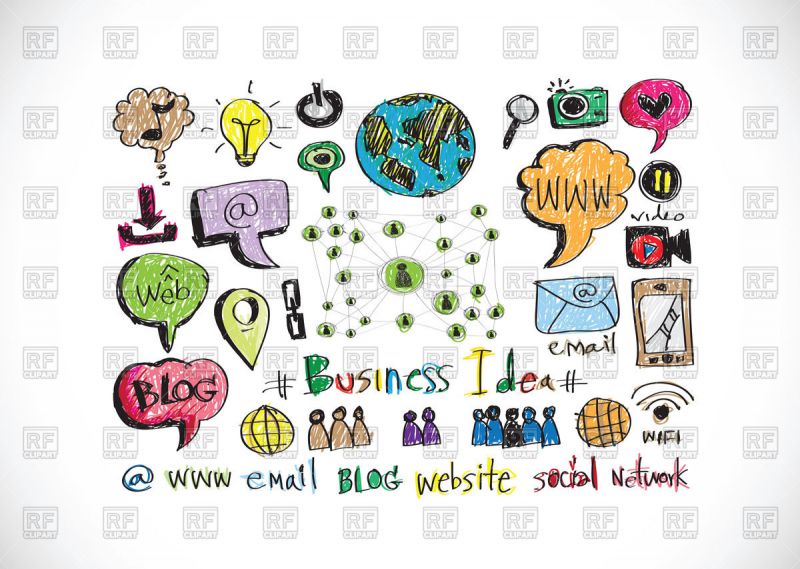 WWW
@
video
Web
@
email
BLOG
# Business Idea #
WIFI
@ www email BLOG website social Network
RF
CLIPART